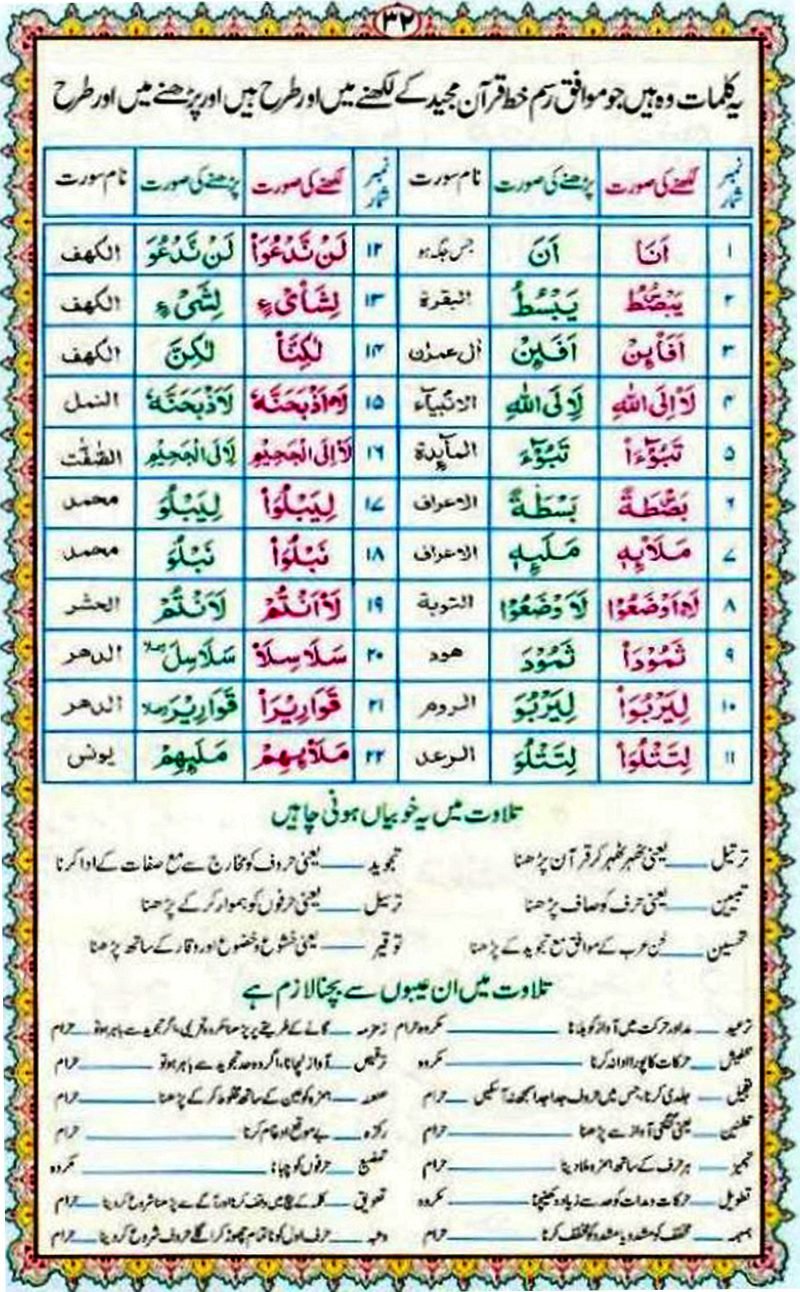 ۳۲
یہ کلمات وہ ہیں جو موافق رسم خط قرآن مجید کے لکھنے میں اور طرح ہیں اور پڑھنے میں اور طرح
نمبر شمار لکھنے کی صورت پڑھنے کی صورت نام سورت نمبر شمار لکھنے کی صورت پڑھنے کی صورت نام سورت
۱ اَنَا اَنَ جس جگہ ہو ۱۲ لَنْ نَّدْعُوَاْ لَنْ نَّدْعُوَ الکھف
۲ يَبْصُۜطُ يَبْسُطُ البقرة ۱۳ لِشَاْیْءٍ لِشَیْءٍ الکھف
۳ اَفَا۠ئِنْ اَفَئِنْ اٰل عمرٰن ۱۴ لٰكِنَّاْ لٰكِنَّ الکھف
۴ لَاْ اِلَى اللّٰهِ لَاِلَى اللّٰهِ الانبیآء ۱۵ لَاۡاَذْبَحَنَّهٗ لَاَذْبَحَنَّهٗ النمل
۵ تَبُوْٓءَاْ تَبُوْٓءَ المآىِٕدة ۱۶ لَاْ اِلَى الْجَحِيْمِ لَاِلَى الْجَحِيْمِ الصّٰفّٰت
۶ بَصْۜطَةً بَسْطَةً الاعراف ۱۷ لِيَبْلُوَاْ لِيَبْلُوَ محمد
۷ مَلَا۠ئِهٖ مَلَئِهٖ الاعراف ۱۸ نَبْلُوَاْ نَبْلُوَ محمد
۸ لَاۡاَوْضَعُوْا لَاَوْضَعُوْا التوبة ۱۹ لَاْاَنْتُمْ لَاَنْتُمْ الحشر
۹ ثَمُوْدَاْ ثَمُوْدَ ھود ۲۰ سَلَاسِلَاْ سَلَاسِلَ الدھر
۱۰ لِيَرْبُوَاْ لِيَرْبُوَ الروم ۲۱ قَوَارِيْرَاْ قَوَارِيْرَ الدھر
۱۱ لِتَتْلُوَاْ لِتَتْلُوَ الرعد ۲۲ مَلَا۠ئِهِمْ مَلَئِهِمْ یونس
تلاوت میں یہ خوبیاں ہونی چاہیں
ترتیل ـــ یعنی ٹھہر ٹھہر کر قرآن پڑھنا تجوید ـــ یعنی حروف کو مخارج سے مع صفات کے ادا کرنا
تبیین ـــ یعنی حرف کو صاف پڑھنا ترسیل ـــ یعنی حرفوں کو ہموار کر کے پڑھنا
تحسین ـــ لحن عرب کے موافق مع تجوید کے پڑھنا توقیر ـــ یعنی خشوع و خضوع اور وقار کے ساتھ پڑھنا
تلاوت میں ان عیبوں سے بچنا لازم ہے
ترعید ـــ مد اور حرکت میں آواز کو ہلانا ـــ مکروہ حرام زمزمہ ـــ گانے کے طریقے پر پڑھنا مکروہ تحریمی، اگر تجوید سے باہر ہو تو ـــ حرام
ـــ حرکات کا پورا ادا نہ کرنا ـــ مکروہ ترقیص ـــ آواز نچانا، اگر وہ حد تجوید سے باہر ہو تو ـــ حرام
تعجیل ـــ جلدی کرنا، جس میں حروف جدا جدا سمجھ نہ آسکیں ـــ حرام ـــ ہمزہ کو عین کے ساتھ مخلوط کر کے پڑھنا ـــ حرام
ـــ یعنی گنگنی آواز سے پڑھنا ـــ حرام ـــ بے موقع ادغام کرنا ـــ حرام
ـــ ہر حرف کے ساتھ ہمزہ ملا دینا ـــ حرام ـــ حرفوں کو چبانا ـــ مکروہ
تطویل ـــ حرکات و مدات کو حد سے زیادہ کھینچنا ـــ مکروہ تعویق ـــ کلمہ کے بیچ میں وقف کرنا اور آگے سے پڑھنا شروع کر دینا ـــ حرام
ـــ مخفف کو مشدد یا مشدد کو مخفف کرنا ـــ حرام ـــ حرف اول کو ناتمام چھوڑ کر اگلے حروف شروع کر دینا ـــ حرام